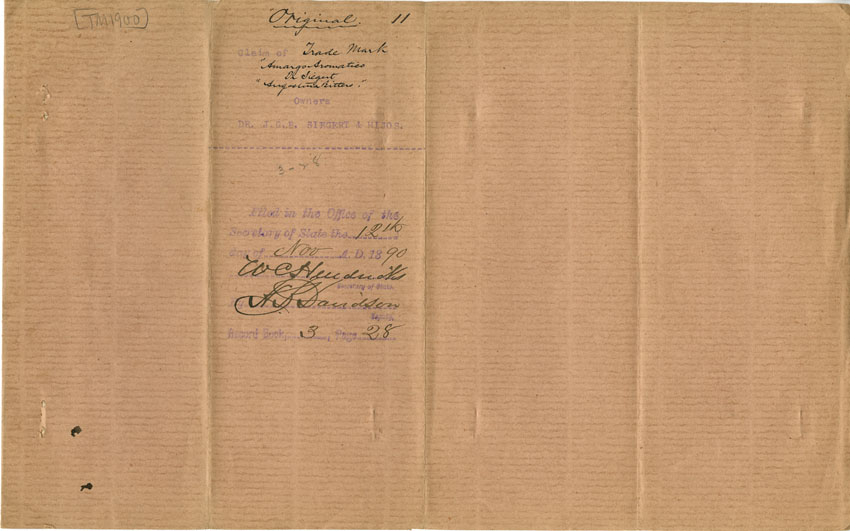 [TM1900]
Original. 11
Claim of Trade Mark
"Amargo Aromatico
Dr Siegert
"Angostura Bitters".
Owners
DR. J.G.B. SIEGERT & HIJOS.
3-28
Filed in the Office of the
Secretary of State the 12th
day of Nov A.D. 1890
W C Hendricks
Secretary of State.
Davidson
Deputy.
Record Book 3, Page 28